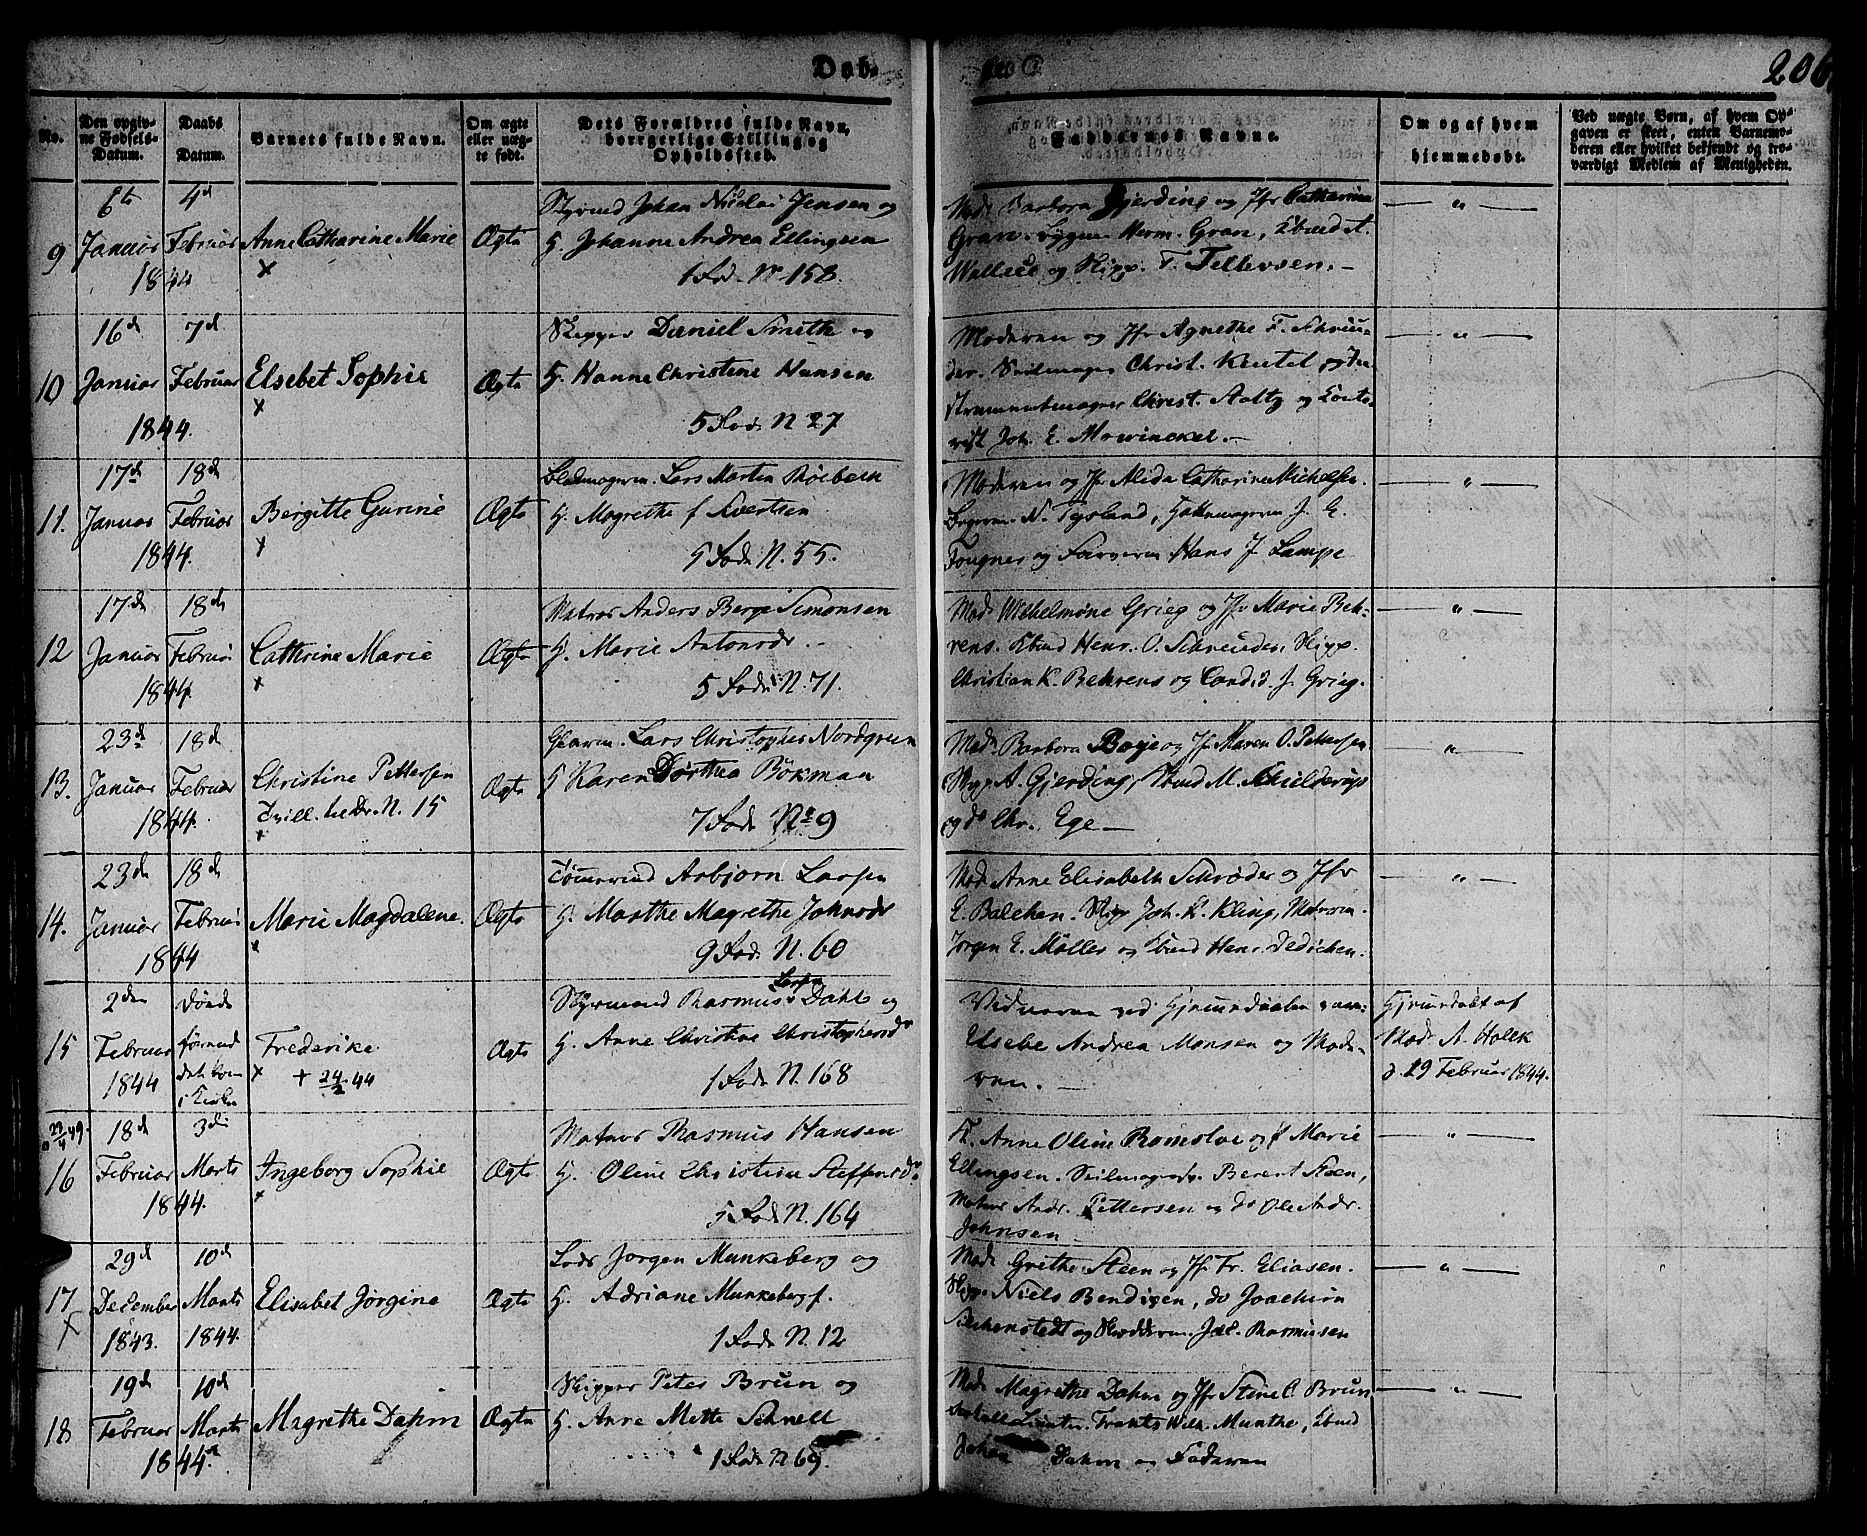 Døb.
206.
No.
Den opgiv-
ne Fødsels-
Datum.
Daabs
Datum.
Barnets fulde Navn.
Om ægte
eller uæg-
te født.
Dets Forældres fulde Navn,
borgerlige Stilling og
Opholdssted.
Faddernes Navne.
Om og af hvem
hjemmedøbt.
Ved uægte Børn, af hvem Op-
gaven er skeet, enten Barnemo-
deren eller hvilket bekjendt og tro-
værdigt Medlem af Menigheden.
9
6te
Januar
1844
4d
Februar
Anne Catharine Marie
x
Ægte
Styrmd Johan Nicolai Jensen og
H. Johanne Andrea Ellingsen
1 Fod. No 158.
Mad. Barbora Gjerding og Jfr Catharina
Gran. Herm. Gran,
Wallece og Skipp. T. Tellevsen. —
— " —
10
16d
Januar
1844.
7d
Februar
Elsebet Sophie
x
Ægte
Skipper Daniel Smith og
H. Hanne Christine Hansen
5 Fod. N 27
Moderen og Jfr Agnethe F. Schreu-
der. Seilmager Christ. Keutel og In-
strumentmager Christ. og Conto-
rist Joh. E. Mowinckel. —
— " —
11.
17d
Januar
1844.
18d
Februar
Bergitte Gurine
x
Ægte
Lars Martin
H. Magrethe f Evertsen
5 Fod. N. 55.
Moderen og Jfr Alida Catharina Michelsen.
N. Tysland, J. E.
Fougner og Farveren Hans J. Lampe
— " —
12
17de
Januar
1844.
18de
Februar
Cathrine Marie
x
Ægte
Matros Anders Berge Simonsen
H. Marie Antonsdr. -
5 Fod. N. 71.
Mad. Wilhelmine Grieg og Jfr Marie Beh-
rens. Henr. O. Schreuder, Skipp.
Christian K. Behrens og Cand. J. Grieg.
— " —
13.
23d
Januar
1844.
18d
Februar
Christine Pettersen
N. 15
x
Ægte
Lars Christopher Nordgreen
H Karen Dorthea Bökman
7 Fod. No 9
Mad. Barbora Boye og Jfr Maren O. Pettersen.
Skipp. A. Gjerding, M. Schilderup
og do Chr. Ege —
"
14.
23de
Januar
1844
18d
Februar
Marie Magdalene.
x
Ægte
Tömmermd Asbjorn Larsen
H. Marthe Magrethe Johnsdr
9 Fod. N. 60
Mad Anne Elisabeth Schrøder og Jfr
E. Balchen. Skipp Joh. K. Kling,
Jørgen E. Möller og Henr. Dedichen.
— " —
15
2den
Februar
1844
Døde
førend
det kom
i Kirke
Frederike
x + 24/2 44
Ægte
Styrmand Rasmus Larsen Dahl og
H. Anne Christine Christophersdr
1 Fod. N. 168
Vidnerne ved Hjemmedaaben vare:
Elsebe Andrea Monsen og Mode-
ren. —
Hjemmedøbt af
Mad. A. Holck
d. 29 Februar 1844.
16
18d
Februar
1844.
3die
Marts
Ingeborg Sophie
x
Ægte
Matros Rasmus Hansen
H. Oline Christine Steffensdr.
5 Fod. N. 164
K. Anne Oline Romslo og f Marie
Ellingsen. Berent Steen,
Matros Andr. Pettersen og do Ole Andr.
Johnsen —
— " —
17
x
29d
December
1843.
10d
Marts
1844.
Elisabet Jørgine
Ægte
Lods Jørgen Munkeberg og
H. Adriane Munkeberg f.
1 Fod. N. 12
Mad. Grethe Steen og Jfr Fr. Eliasen.
Skipp. Niels Bendixen, do Joachim
og Skredderm. Jac. Rasmusen
— " —
18
19d
Februar
1844.
10d
Marts
Magrethe Dahm
Ægte
Skipper Peter Brun og
H. Anne Mette Schnell
1 Fod. N 69.
Mad. Magrethe Dahm og Jfr Stine C. Brun
Frants Wilh. Munthe,
Johan Dahm og Faderen
— " —